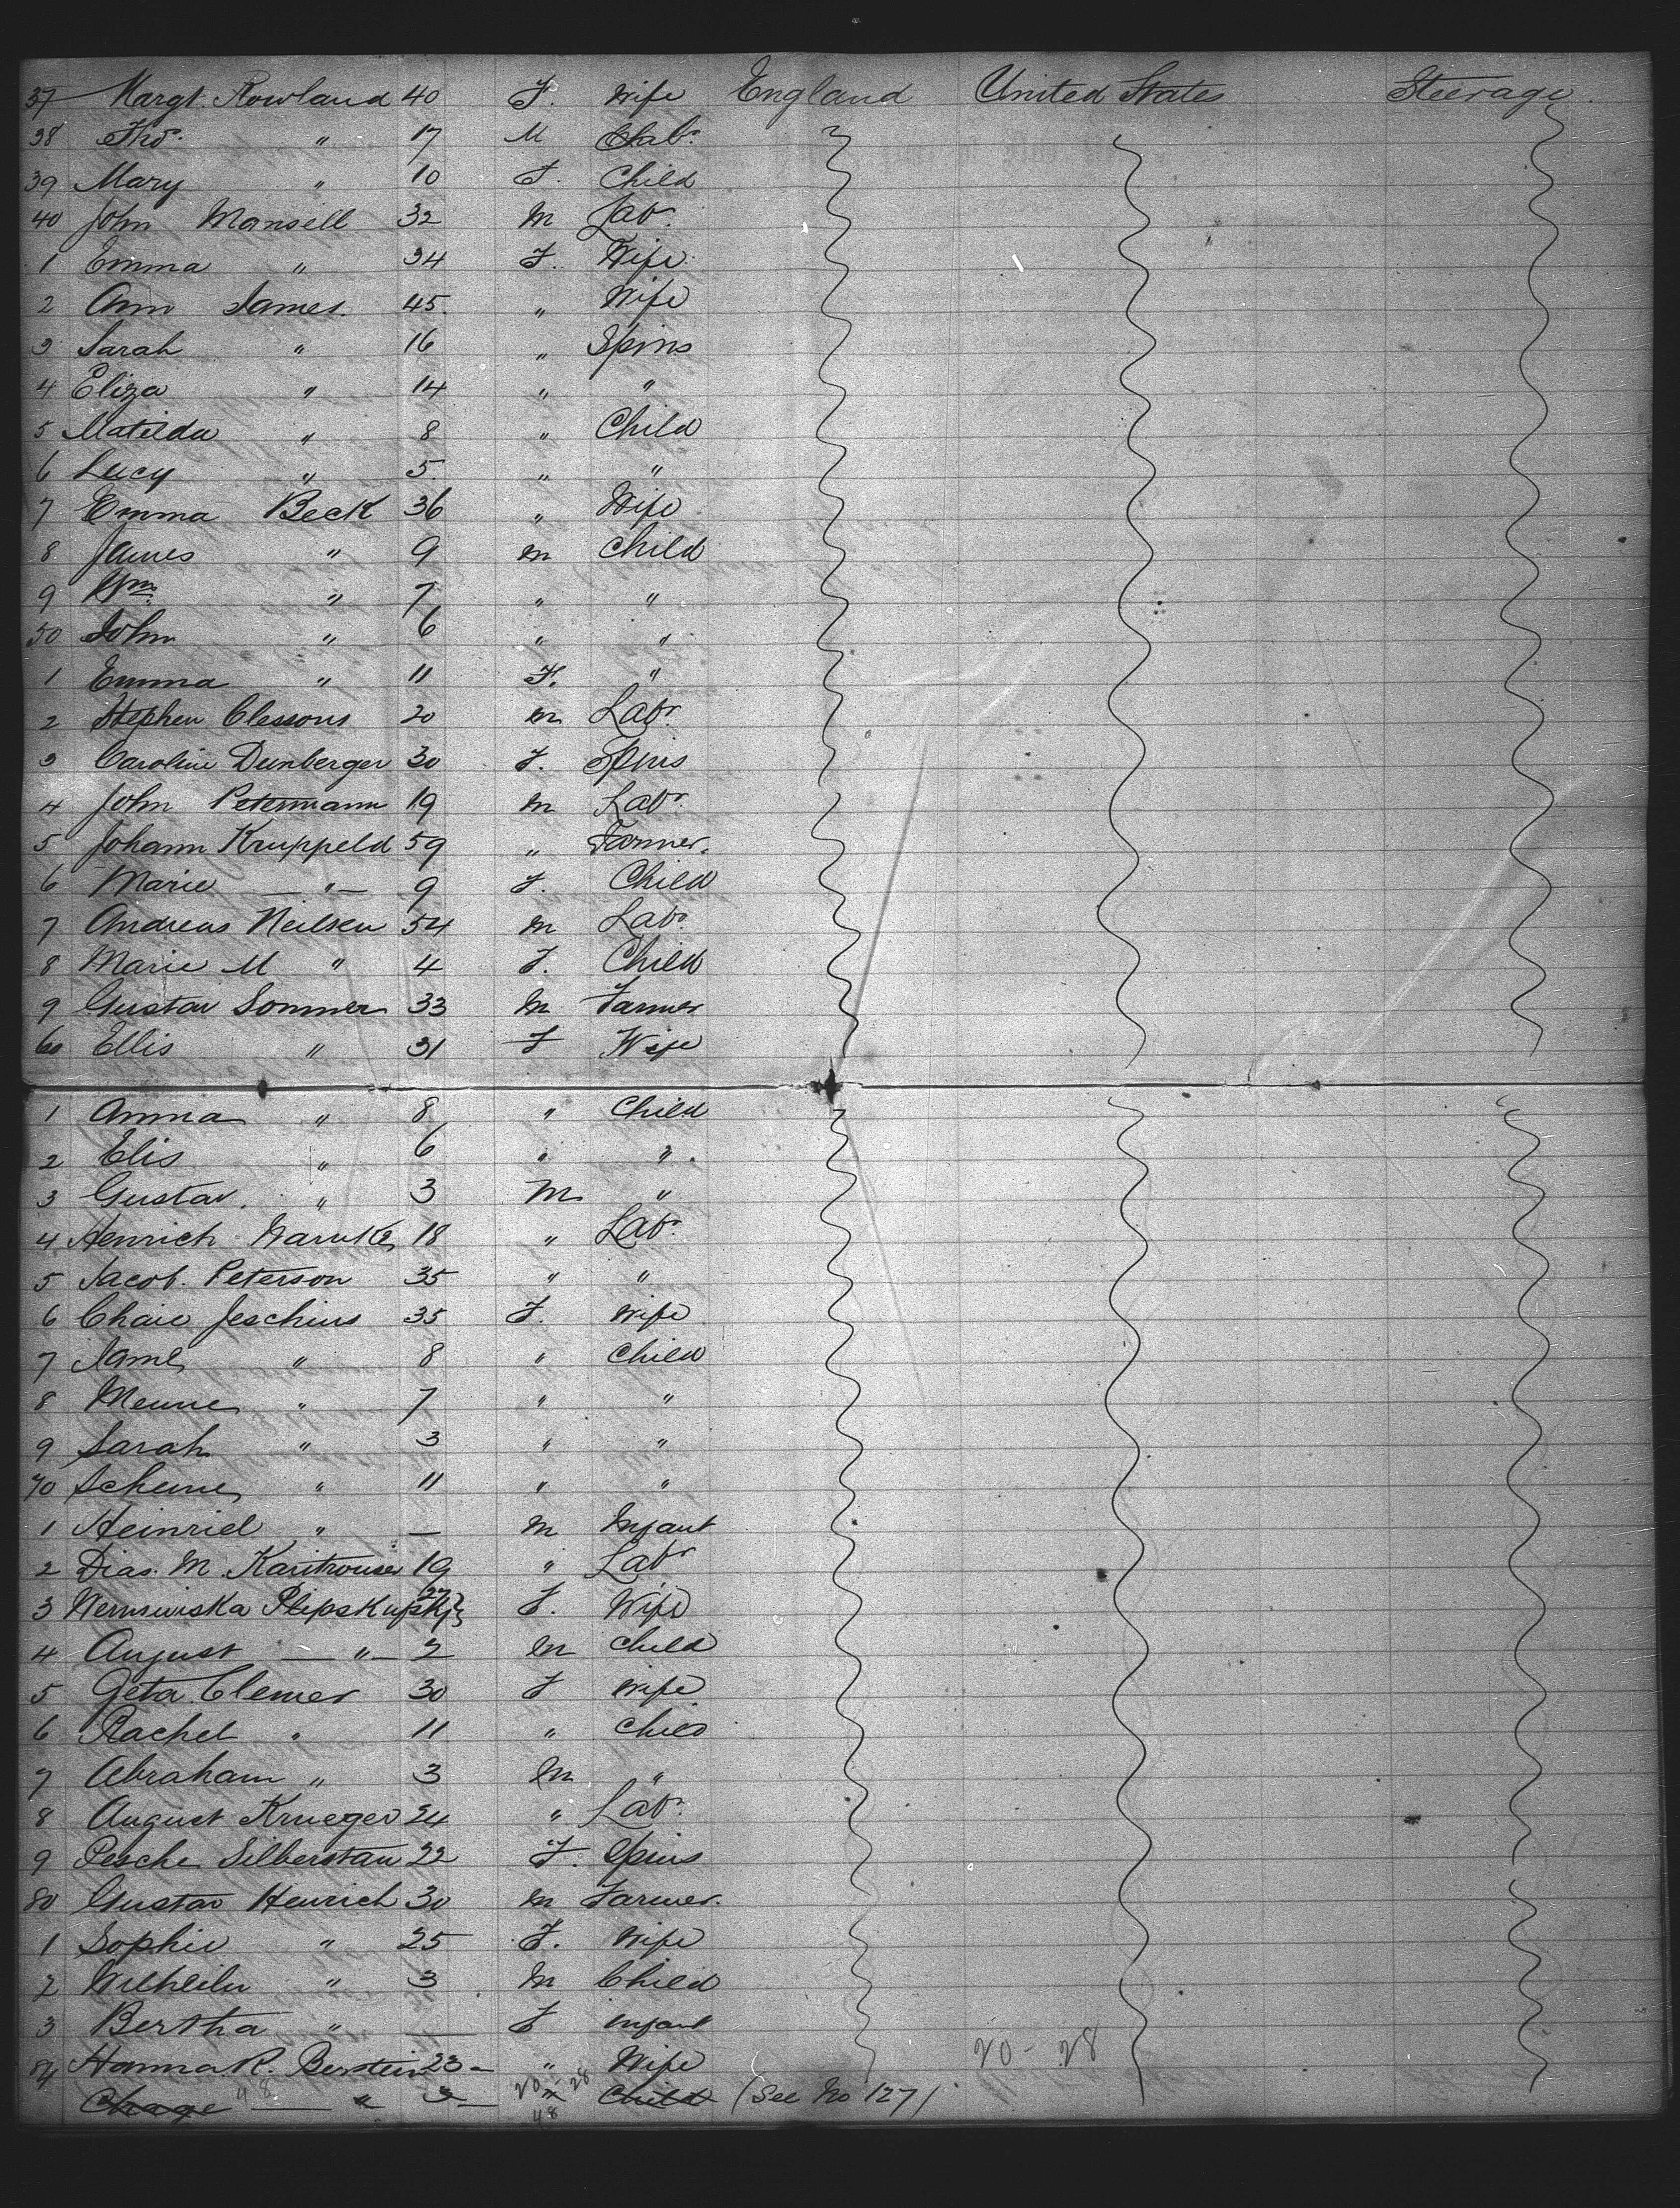 37 Margt. Rowland 40 F. Wife England United States Steerage
38 Thos. " 17 M Labr.
39 Mary " 10 F. Child
40 John Mansell 32 M Labr.
1 Emma " 34 F. Wife
2 Ann James. 45. " Wife
3 Sarah " 16 " Spins
4 Eliza " 14 " "
5 Matilda " 8 " Child
6 Lucy " 5. " "
7 Emma Beck 36 " Wife
8 James " 9 M Child
9 Wm. " 7 " "
50 John " 6 " "
1 Emma " 11 F. "
2 Stephen Clessons 20 M Labr.
3 Caroline Dunberger 30 F. Spins
4 John Petermann 19 M Labr.
5 Johann Kruppeld 59 " Farmer.
6 Marie — " — 9 F. Child
7 Andreas Neilsen 54 M Labr.
8 Marie M " 4 F. Child
9 Gustav Sommer 33 M Farmer
60 Ellis " 31 F Wife
1 Anna " 8 " Child
2 Elis " 6 " ".
3 Gustav. " 3 M "
4 Henrich 18 " Labr.
5 Jacob. Peterson 35 " "
6 Chaie Jeschins 35 F. Wife
7 " 8 " Child
8 " 7 " "
9 Sarah " 3 " "
70 Scheine " 11 " "
1 Heinriel " — M Infant
2 Dias. M. 19 " Labr
3 27 F. Wife
4 August — " — 2 M Child
5 Geta. Clemer 30 F Wife
6 Rachel " 11 " Child
7 Abraham " 3 M "
8 August Krueger 24 " Labr.
9 Pesche Silberstau 22 F. Spins
80 Gustav Henrich 30 M Farmer.
1 Sophie " 25 F. Wife
2 Wilhelm " 3 M Child
3 Bertha " — F Infant
84 Hanna R. Berstein 23 – " Wife 20 - 28
Chage " 8 — " 3 – 20 - 28 " Child (See No 127)
48